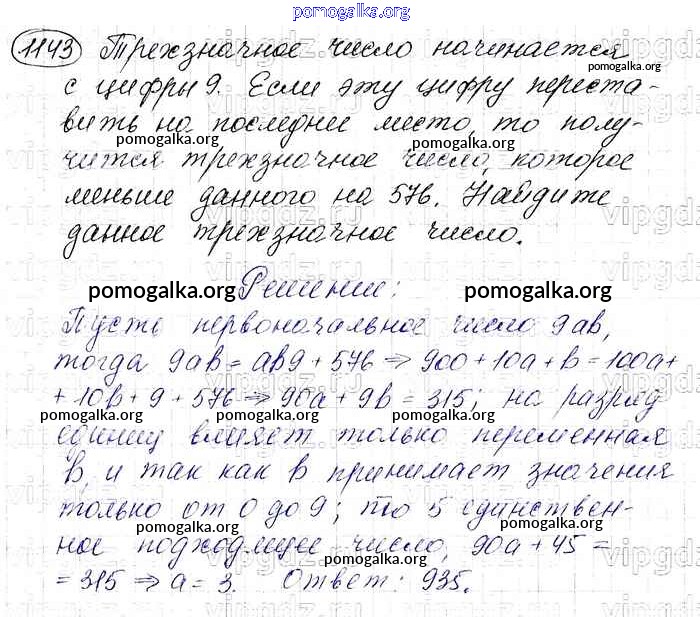 pomogalka.org
1143 Трехзначное число начинается
pomogalka.org pomogalka.org
с цифры 9. Если эту цифру переста-
вить на последнее место, то полу-
pomogalka.org pomogalka.org
чится трехзначное число, которое
меньше данного на 576. Найдите
данное трехзначное число.
pomogalka.org Решение: pomogalka.org
Пусть первоначальное число 9ав,
тогда 9ав = ав9 + 576 ⇒ 900 + 10а + в = 100а +
+ 10в + 9 + 576 ⇒ 90а + 9в = 315; на разряд
pomogalka.org pomogalka.org pomogalka.org
единиц влияет только переменная
в, и так как в принимает значения
только от 0 до 9; то 5 единствен-
pomogalka.org pomogalka.org
ное подходящее число, 90а + 45 =
pomogalka.org
= 315 ⇒ а = 3. Ответ: 935.
pomogalka.org